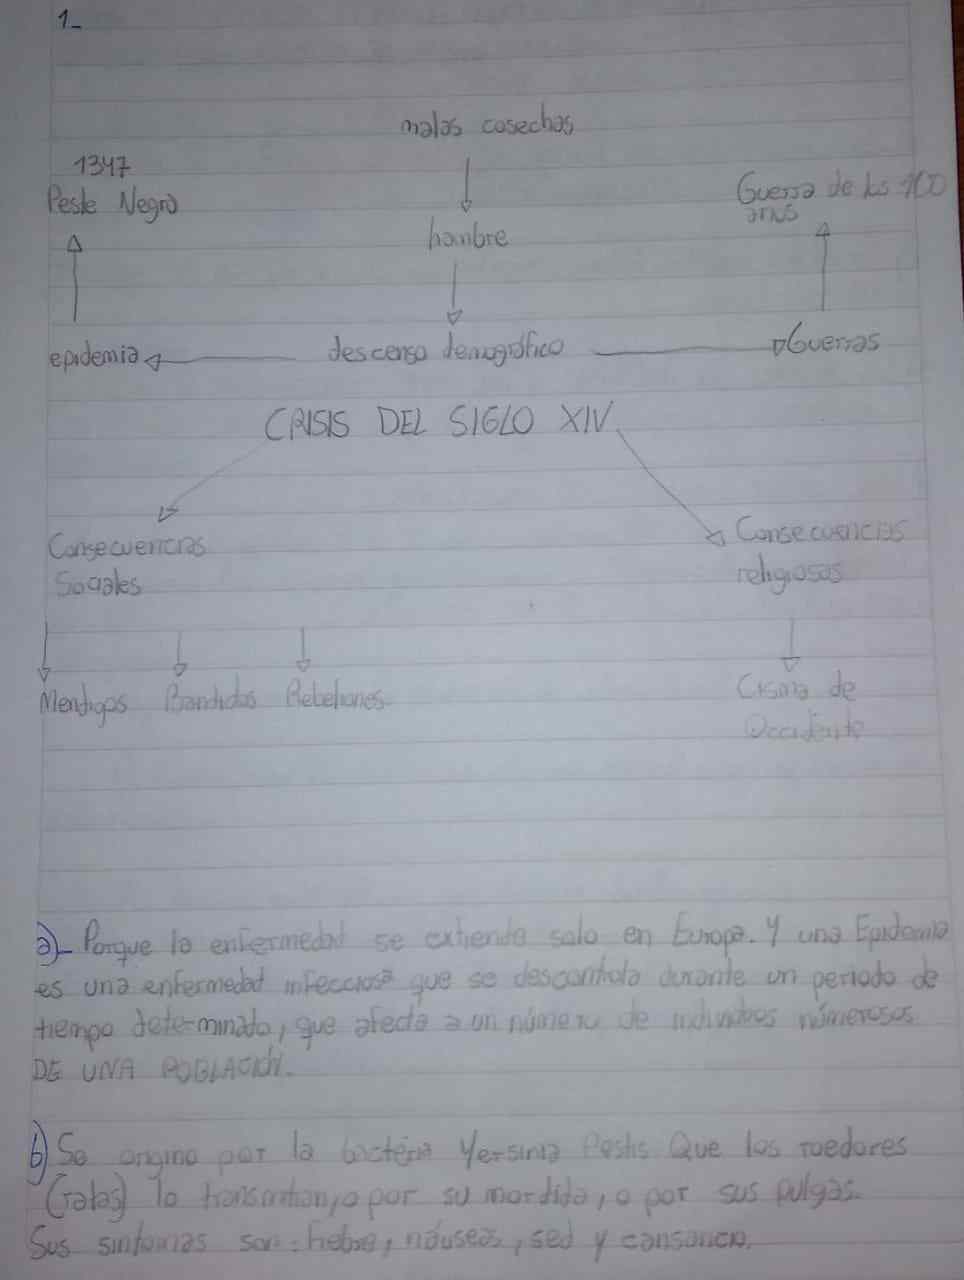 1_
malas cosechas
1347
Peste Negra
Guerra de los 100
años
hambre
epidemia descenso demográfico Guerras
CRISIS DEL SIGLO XIV
Consecuencias
Sociales
Consecuencias
religiosas
Mendigos Bandidos Rebeliones
Cisma de
Occidente
a)_ Porque la enfermedad se extiende solo en Europa. Y una Epidemia
es una enfermedad infecciosa que se descontrola durante un periodo de
tiempo determinado, que afecta a un número de individuos númerosos
DE UNA POBLACIÓN.
b) Se origino por la bacteria Yersinia Pestis Que los roedores
(ratas) la transmitian, o por su mordida, o por sus pulgas.
Sus sintomas son: fiebre, náuseas, sed y cansancio.